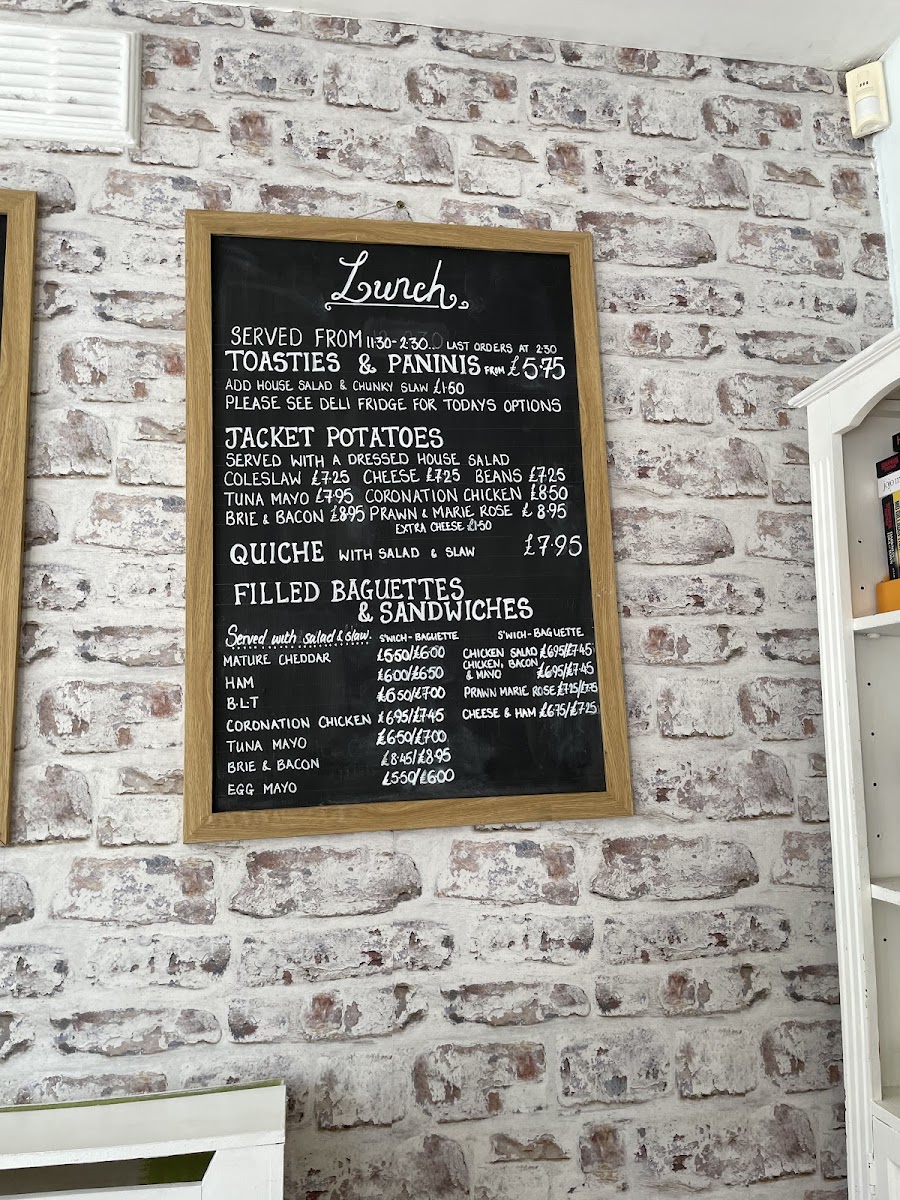 Lunch
SERVED FROM 11:30-2:30... LAST ORDERS AT 2:30
TOASTIES & PANINIS FROM £5.75
ADD HOUSE SALAD & CHUNKY SLAW £1.50
PLEASE SEE DELI FRIDGE FOR TODAYS OPTIONS
JACKET POTATOES
SERVED WITH A DRESSED HOUSE SALAD
COLESLAW £7.25 CHEESE £7.25 BEANS £7.25
TUNA MAYO £7.95 CORONATION CHICKEN £8.50
BRIE & BACON £8.95 PRAWN & MARIE ROSE £8.95
EXTRA CHEESE £1.50
QUICHE WITH SALAD & SLAW £7.95
FILLED BAGUETTES
& SANDWICHES
Served with salad & slaw. S'WICH - BAGUETTE
MATURE CHEDDAR £5.50/£6.00
HAM £6.00/£6.50
B.L.T £6.50/£7.00
CORONATION CHICKEN £6.95/£7.45
TUNA MAYO £6.50/£7.00
BRIE & BACON £8.45/£8.95
EGG MAYO £5.50/£6.00
S'WICH - BAGUETTE
CHICKEN SALAD £6.95/£7.45
CHICKEN, BACON
& MAYO £6.95/£7.45
PRAWN MARIE ROSE £7.25/£7.75
CHEESE & HAM £6.75/£7.25